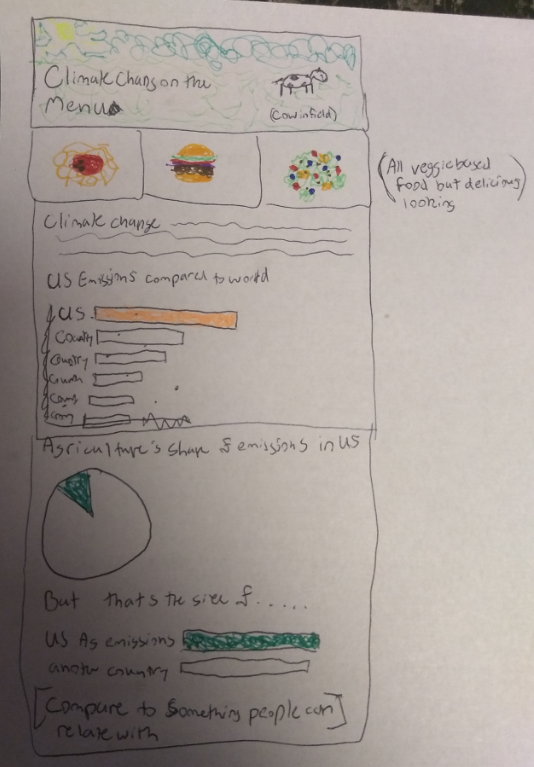 Climate Change on the
Menu
(Cow in field)
(All veggie based
food but delicious
looking)
Climate change
US Emissions compared to world
US.
Country
Country
Agriculture's share of emissions in US
But that's the size of.....
US Ag emissions
another country
[Compare to something people can]
relate with